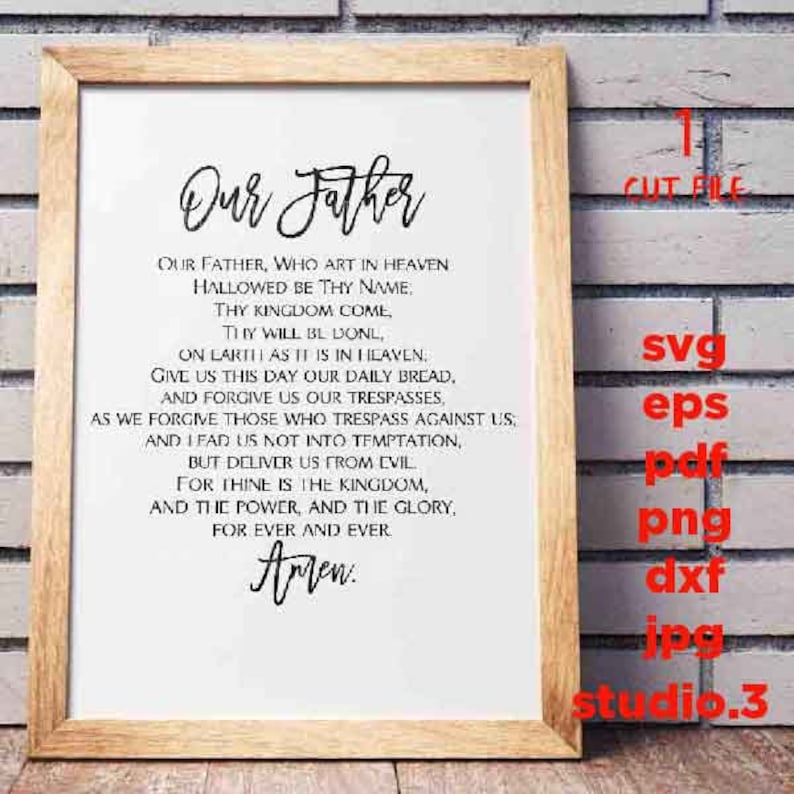 Our Father
Our Father, Who art in heaven
Hallowed be Thy Name;
Thy kingdom come,
Thy will be done,
on earth as it is in heaven.
Give us this day our daily bread,
and forgive us our trespasses,
as we forgive those who trespass against us;
and lead us not into temptation,
but deliver us from evil.
For thine is the kingdom,
and the power, and the glory,
for ever and ever.
Amen.
1
CUT FILE
svg
eps
pdf
png
dxf
jpg
studio.3